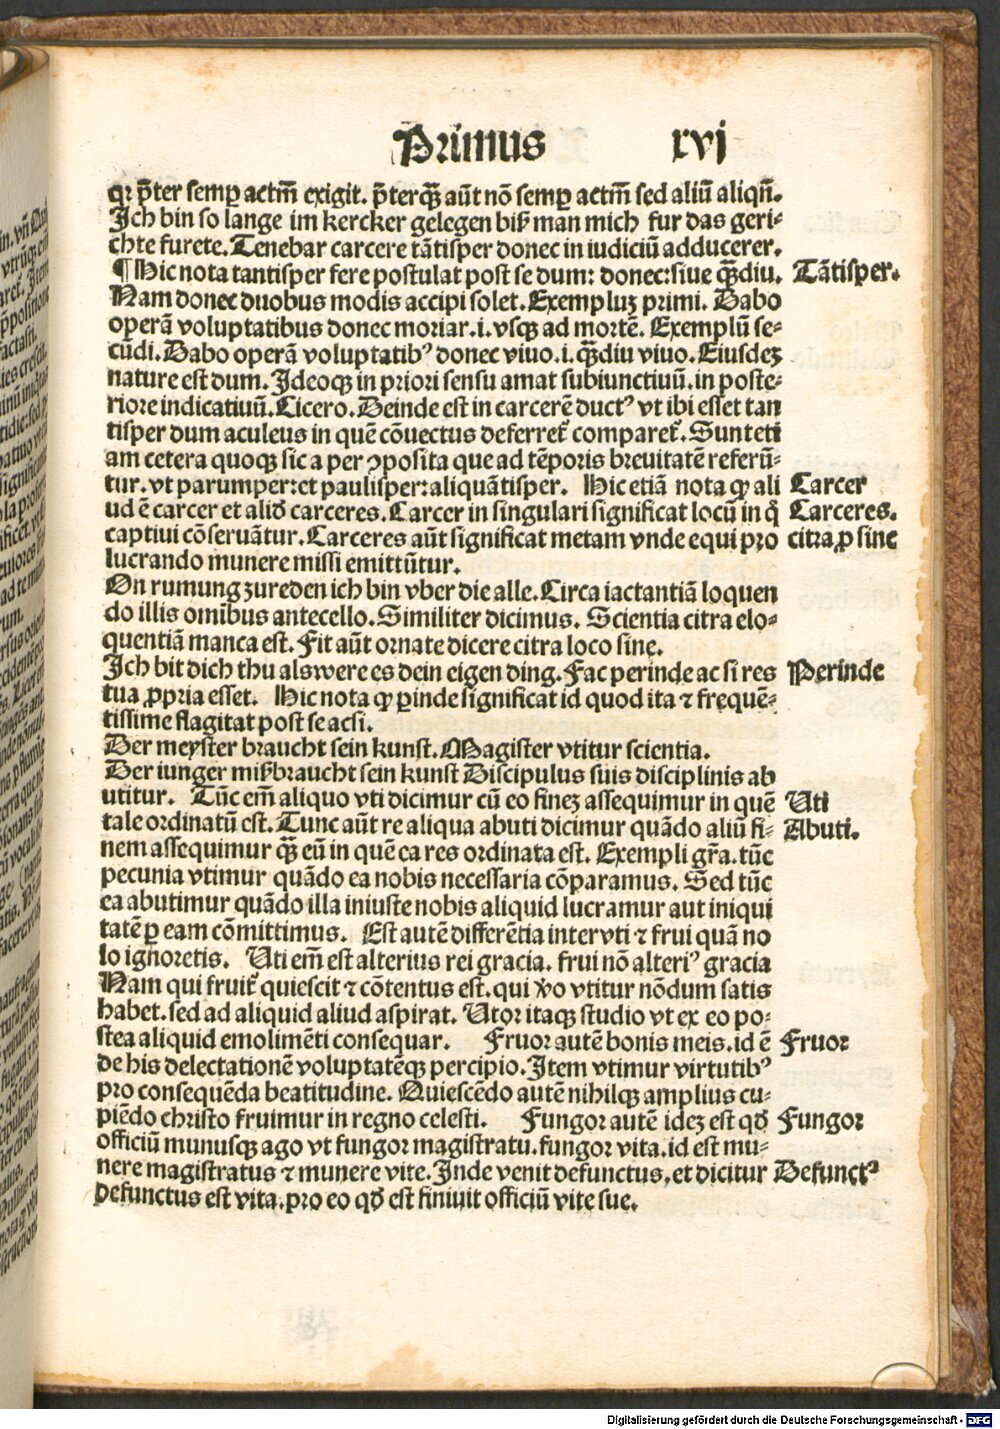 Primus xvj
qꝛ p̃ter semꝑ actm̃ exigit. p̃terqꝫ̃ aūt nō semꝑ actm̃ sed aliū aliqñ.
Ich bin so lange im kercker gelegen biß man mich fur das geri⸗
chte furete. Tenebar carcere tātisper donec in iudiciū adducerer.
¶ Hic nota tantisper fere postulat post se dum: donec: siue qꝫ̃diu. Tātisper.
Nam donec duobus modis accipi solet. Exempluꝫ primi. Dabo
operā voluptatibus donec moriar .i. vsqꝫ ad mortē. Exemplū se⸗
cūdi. Dabo operā voluptatibꝰ donec viuo .i. qꝫ̃diu viuo. Eiusdeꝫ
nature est dum. Ideoqꝫ in priori sensu amat subiunctiuū. in poste⸗
riore indicatiuū. Cicero. Deinde est in carcerē ductꝰ vt ibi esset tan
tisper dum aculeus in quē cōuectus deferret᷑ comparet᷑. Sunt eti
am cetera quoqꝫ sic a per ꝯposita que ad tēporis breuitatē referū⸗
tur. vt parumper: et paulisper: aliquātisper. Hic etiā nota ꝙ ali Carcer
ud ē carcer et alid̕ carceres. Carcer in singulari significat locū in q̇̄ Carceres.
captiui cōseruātur. Carceres aūt significat metam vnde equi pro citra ꝓ sine
lucrando munere missi emittūtur.
On rumung zureden ich bin vber die alle. Circa iactantiā loquen
do illis omībus antecello. Similiter dicimus. Scientia citra elo⸗
quentiā manca est. Fit aūt ornate dicere citra loco sine.
Ich bit dich thu als were es dein eigen ding. Fac perinde ac si res Perinde
tua ꝓpria esset. Hic nota ꝙ ꝑinde significat id quod ita ⁊ frequē⸗
tissime flagitat post se acsi.
Der meyster braucht sein kunst. Magister vtitur scientia.
Der iunger mißbraucht sein kunst Discipulus suis disciplinis ab
utitur. Tūc em̄ aliquo vti dicimur cū eo fineꝫ assequimur in quē Uti
tale ordinatū est. Tunc aūt re aliqua abuti dicimur quādo aliū fi⸗ Abuti.
nem assequimur qꝫ̃ eū in quē ea res ordinata est. Exempli gr̄a. tūc
pecunia vtimur quādo ea nobis necessaria cōparamus. Sed tūc
ea abutimur quādo illa iniuste nobis aliquid lucramur aut iniqui
tatē ꝑ eam cōmittimus. Est autē differētia inter vti ⁊ frui quā no
lo ignoretis. Uti em̄ est alterius rei gracia. frui nō alteriꝰ gracia
Nam qui fruit᷑ quiescit ⁊ cōtentus est. qui ꝟo vtitur nōdum satis
habet. sed ad aliquid aliud aspirat. Utor itaqꝫ studio vt ex eo po⸗
stea aliquid emolimēti consequar. Fruor autē bonis meis. id ē Fruor
de his delectationē voluptatēqꝫ percipio. Item vtimur virtutibꝰ
pro consequēda beatitudine. Quiescēdo autē nihilqꝫ amplius cu⸗
piēdo christo fruimur in regno celesti. Fungor autē ideꝫ est qd̕ Fungor
officiū munusqꝫ ago vt fungor magistratu. fungor vita. id est mu⸗
nere magistratus ⁊ munere vite. Inde venit defunctus, et dicitur Defunctꝰ
defunctus est vita. pro eo qd̕ est finiuit officiū vite sue.
Digitalisierung gefördert durch die Deutsche Forschungsgemeinschaft - DFG